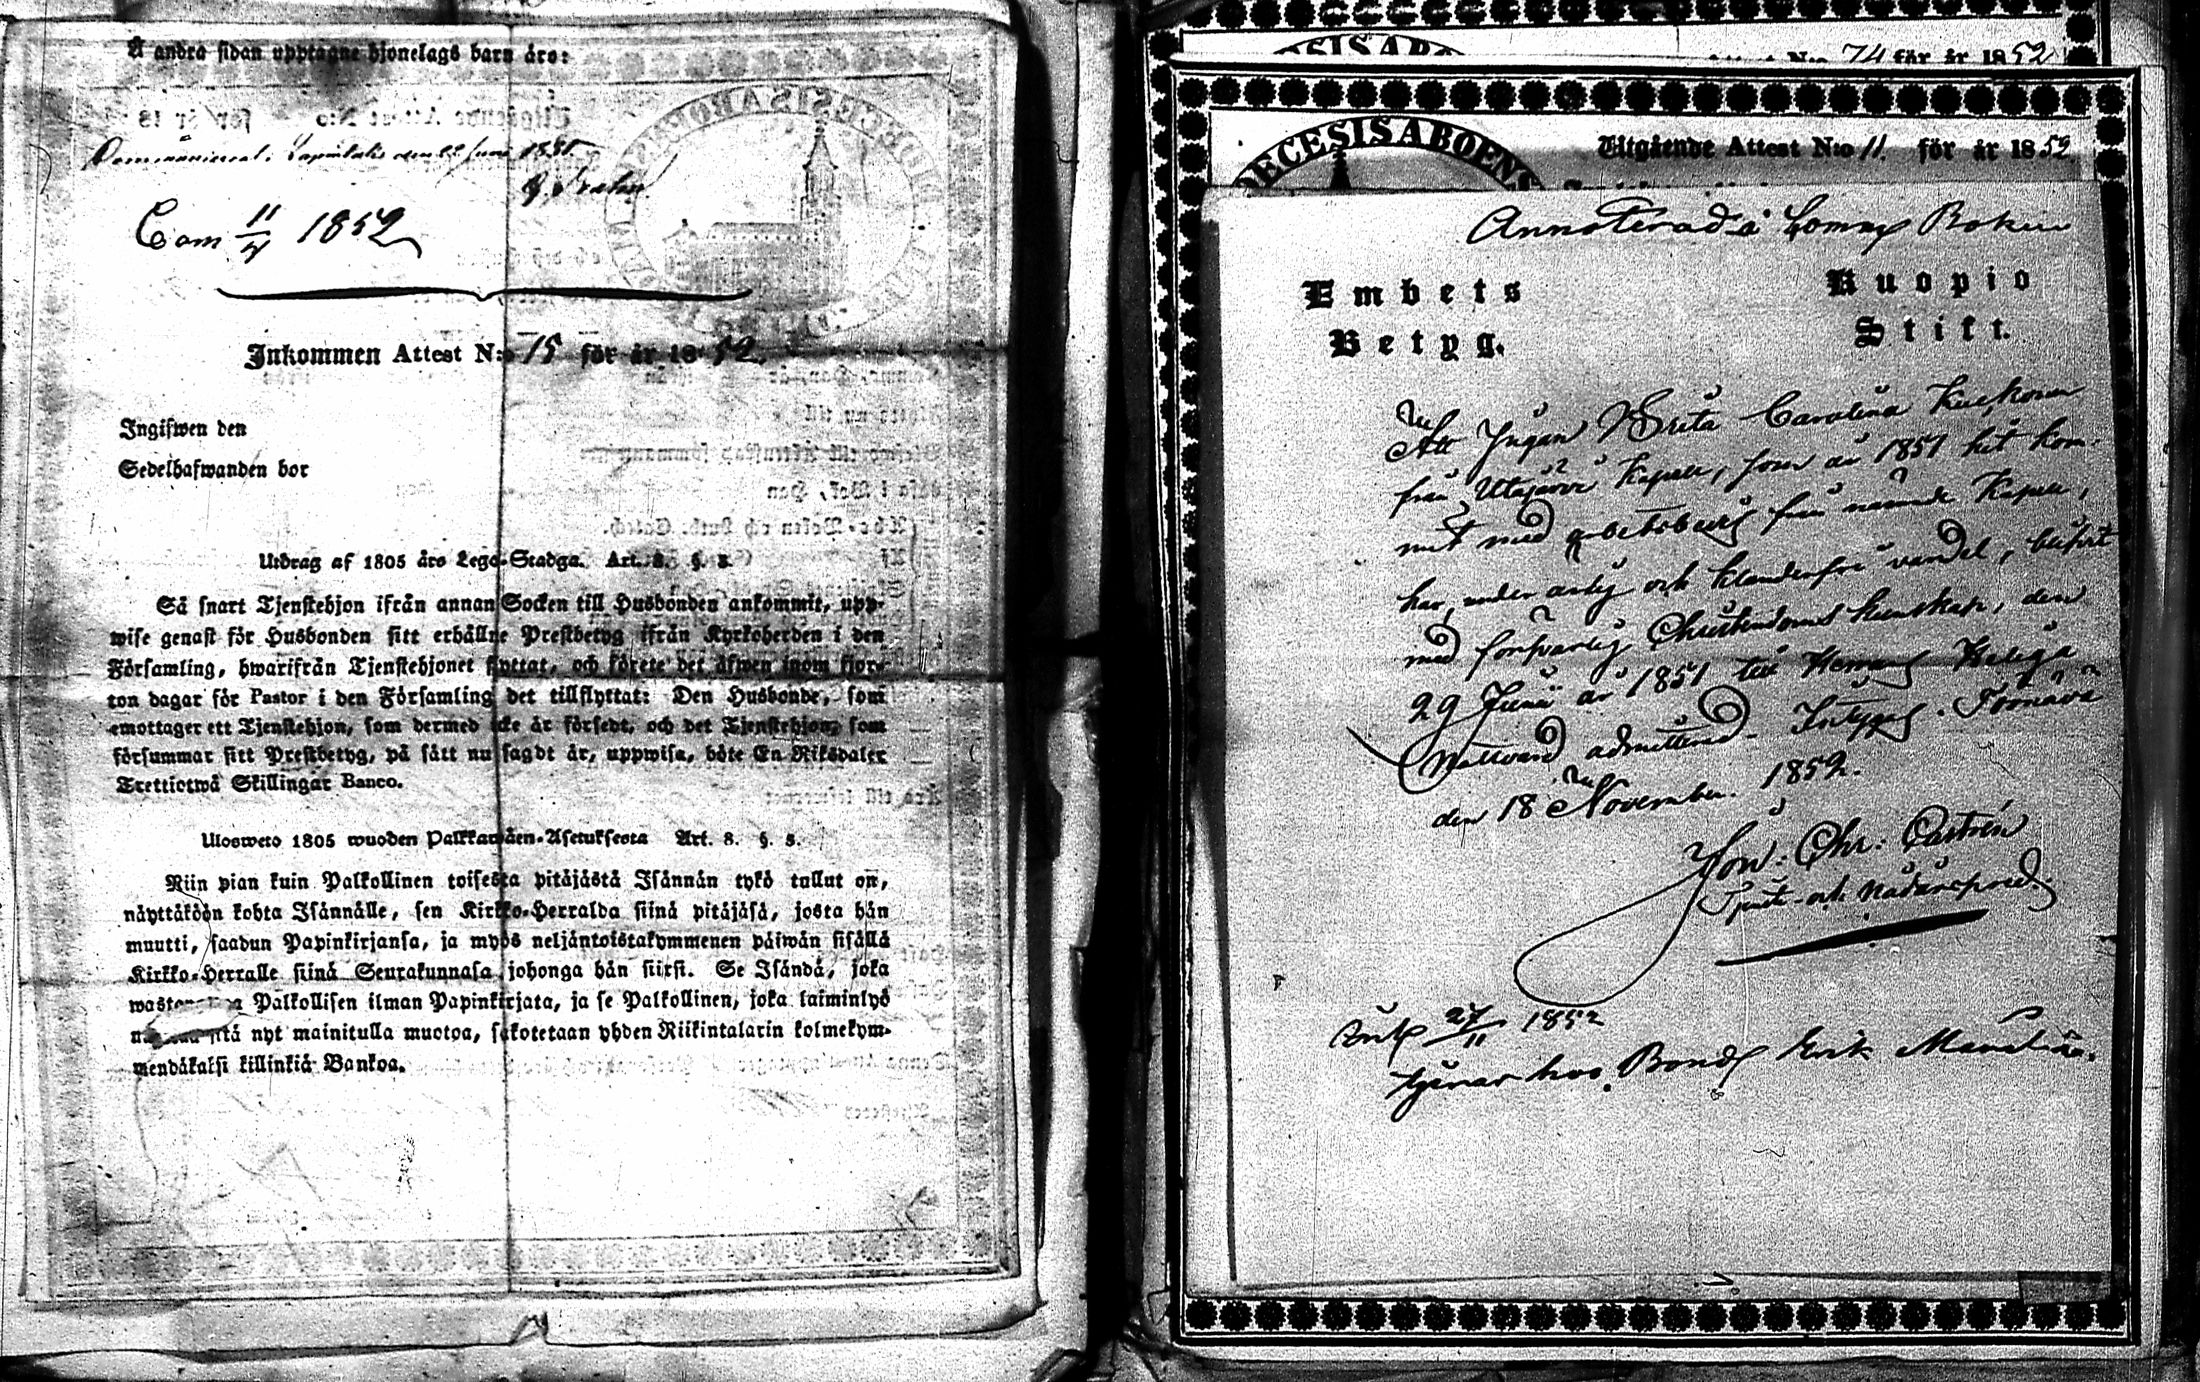 Å andra sidan upptagne hjonelags barn äro:
Com 11/4 1852
Inkommen Attest N:o 75 för år 1852.
Ingifwen den
Sedelhafwanden bor
Utdrag af 1805 års Lego-Stadga. Art. 8. §. 3.
Så snart Tjenstehjon ifrån annan Socken till Husbonden ankommit, upp-
wise genast för Husbonden sitt erhållne Prestbetyg ifrån Kyrkoherden i den
Församling, hwarifrån Tjenstehjonet flyttat, och förete det äfwen inom fjor-
ton dagar för Pastor i den Församling det tillflyttat: Den Husbonde, som
emottager ett Tjenstehjon, som dermed icke är försedt, och det Tjenstehjon, som
försummar sitt Prestbetyg, på sätt nu sagdt är, uppwisa, böte En Riksdaler
Trettiotwå Skillingar Banco.
Ulosweto 1805 wuoden Palkkawäen-Asetuksesta Art. 8. §. 3.
Niin pian kuin Palkollinen toisesta pitäjästä Isännän tykö tullut on,
näyttäköön kohta Isännälle, sen Kirkko-Herralda siinä pitäjäsä, josta hän
muutti, saadun Papinkirjansa, ja myös neljäntoistakymmenen päiwän sisällä
Kirkko-Herralle siinä Seurakunnasa johonga hän siirsi. Se Isändä, joka
Palkollisen ilman Papinkirjata, ja se Palkollinen, joka laiminlyö
nyt mainitulla muotoa, sakotetaan yhden Riikintalarin kolmekym-
mendäkaksi killinkiä Bankoa.
N:o 74 för år 1852
DECESIS ABOENS
Utgående Attest N:o 11. för år 1852
Annoterad i Comm Boken
Embets Kuopio
Betyg. Stift.
Att Pigan Brita Carolina
från Utajärvi Kapell, som år 1851 hit kom-
mit med arbetsbetyg från nämnde Kapell,
har, under ärlig och klanderfri vandel, blifvit
med försvarlig Christendoms kunskap, den
29 Junii år 1851 till Herrans Heliga
Nattvard admitterad. Intygas. Torneå
den 18 November 1852.
Joh: Chr: Castrén
27/11 1852
tjenar hos Bond Erik